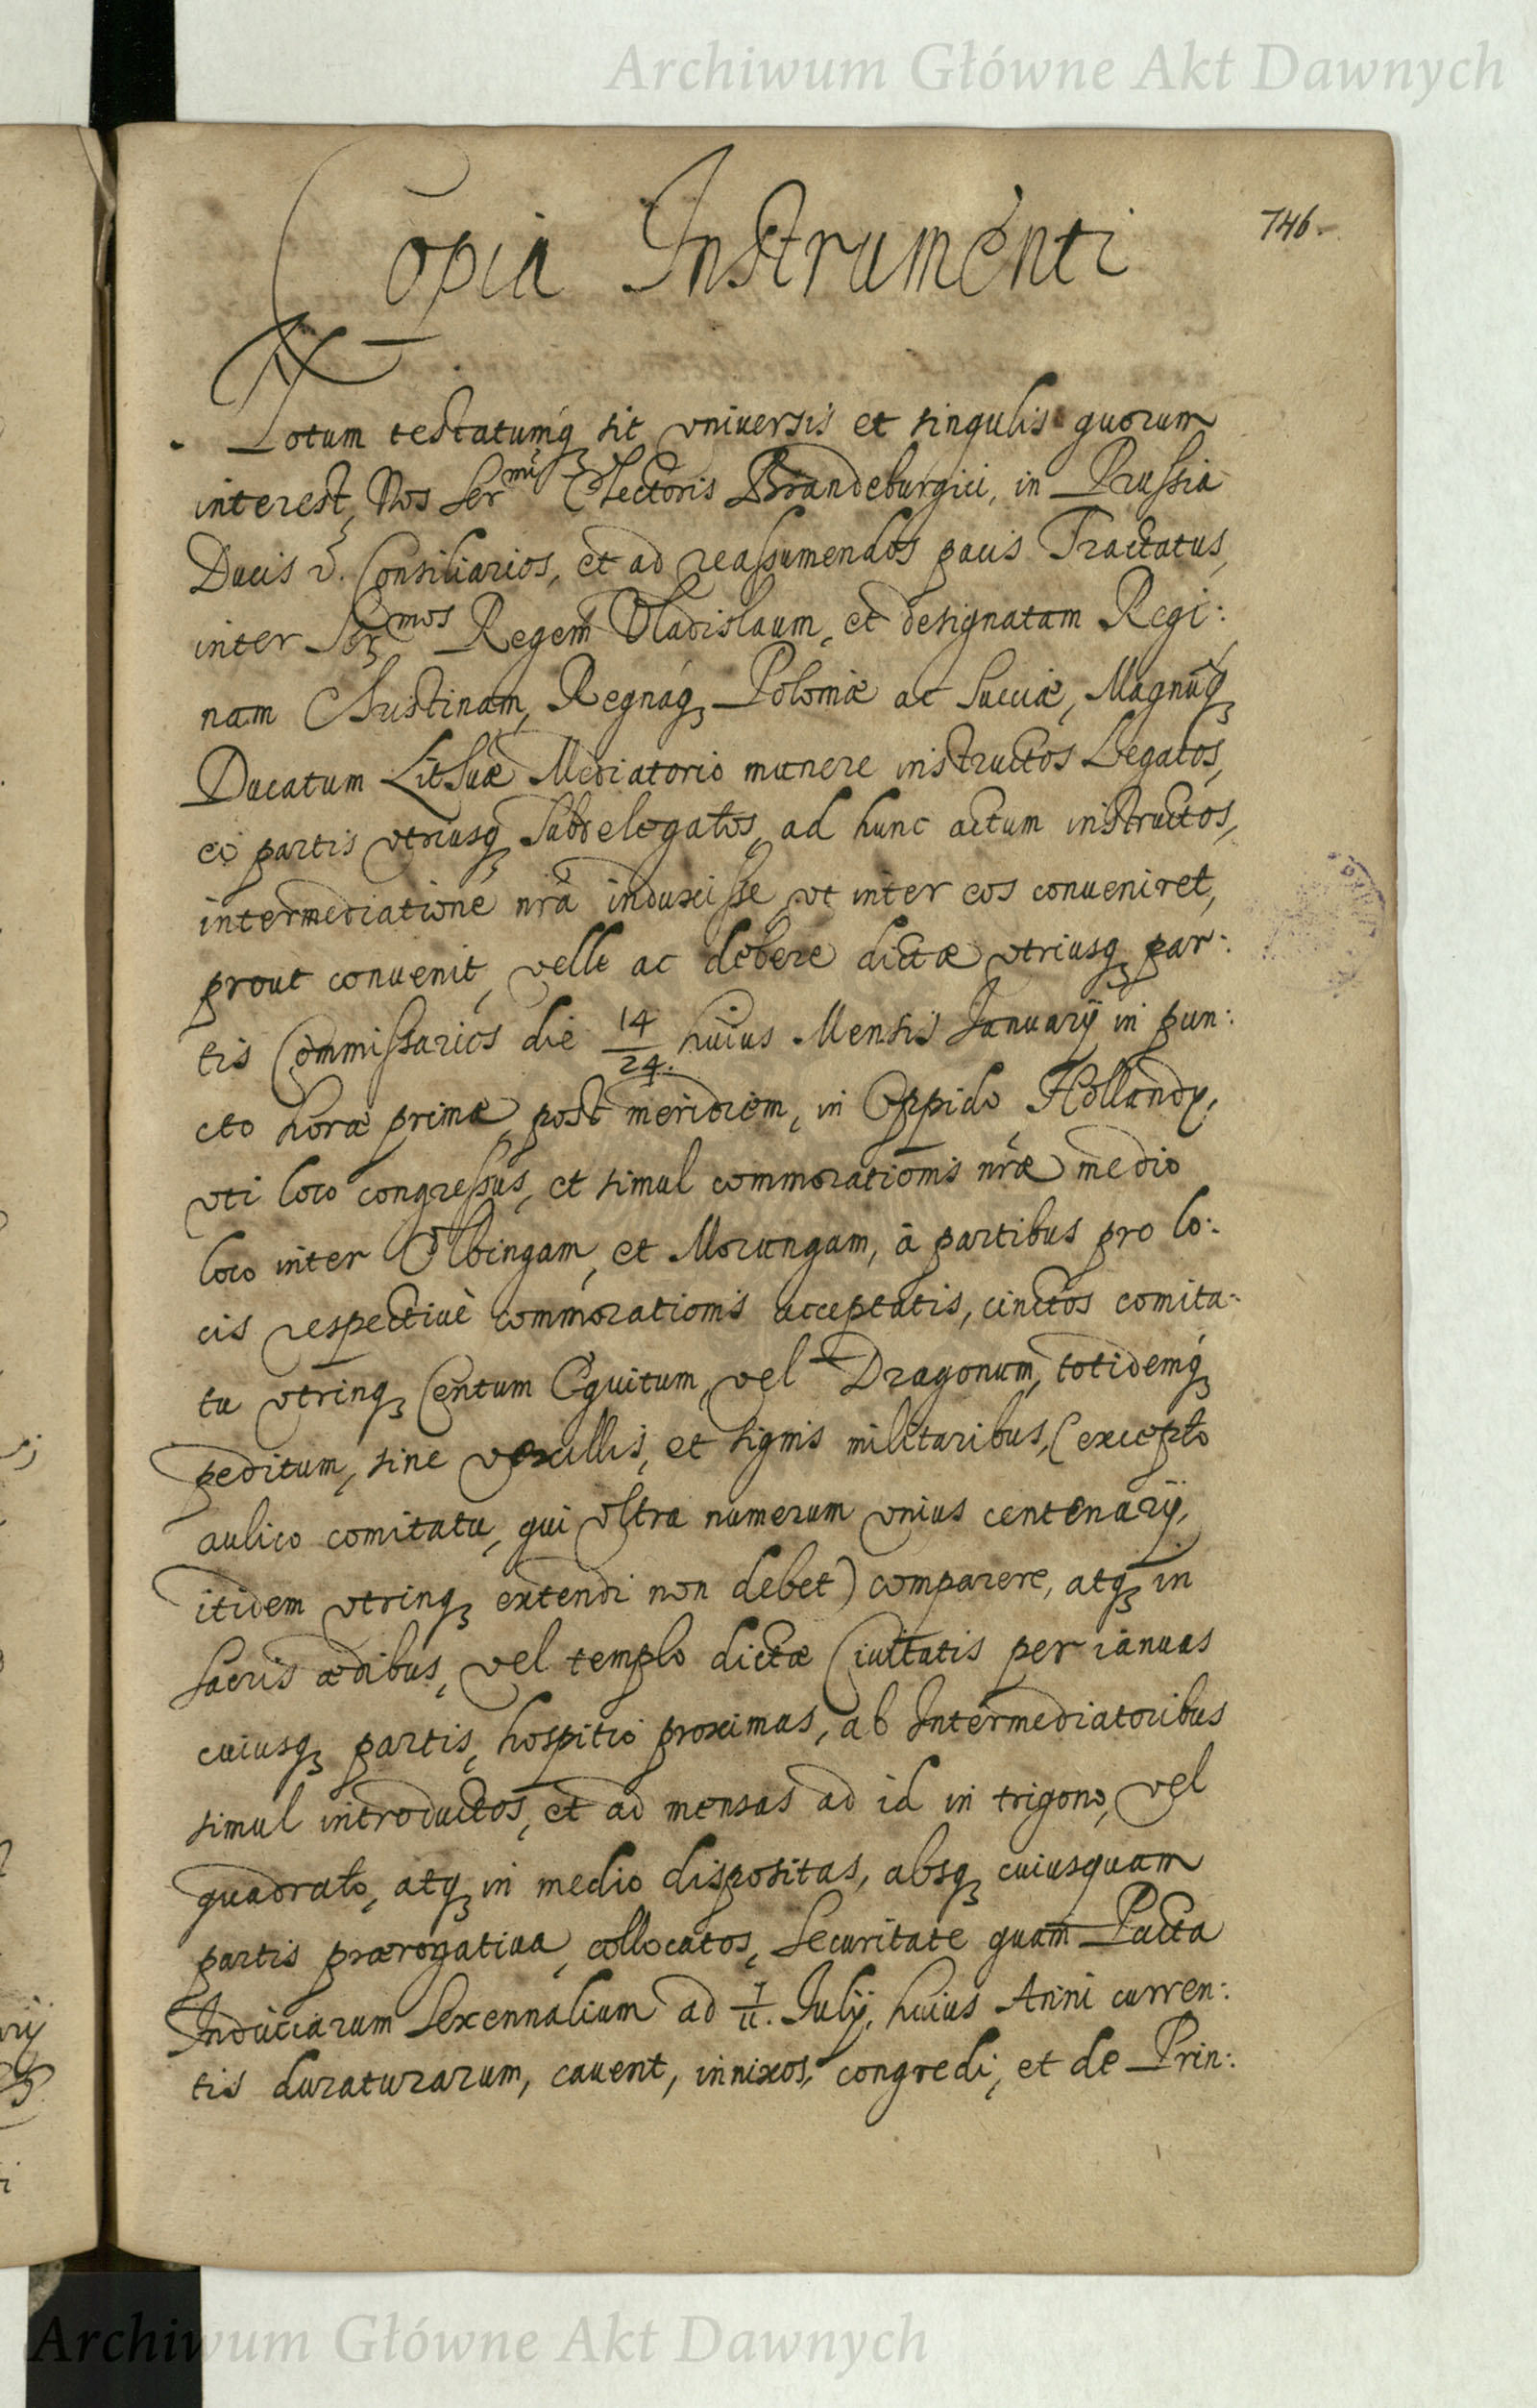 Archiwum Główne Akt Dawnych
746.
Copia Instrumenti
Notum testatumq́ꝫ sit vniuersis et singulis quorum
interest, Nos Serᵐⁱ Electoris Brandeburgici, in Prussia
Ducis Consiliarios, et ad reassumendos pacis Tractatus,
inter Serᵐᵒˢ Regem Vladislaum, et designatam Regi:
nam Christinam, Regnaq́ꝫ Poloniæ ac Sueciæ, Magnũq́ꝫ
Ducatum Lithuæ Mediatorio munere instructos Legatos,
eò partis vtriusqꝫ Subdelegatos, ad hunc actum instructos,
intermediatione nrã induxisse, vt inter eos conueniret,
prout conuenit, velle ac debere dictæ vtriusqꝫ par:
tis Commissarios die 14/24. huius Mensis Januarij in pun:
cto horæ primæ, post meridiem, in Oppido Hollandy,
vti loco congressus, et simul commorationis nræ medio
loco inter Elbingam, et Morungam, à partibus pro lo:
cis respectiuè commorationis acceptatis, cinctos comita:
tu vtrinqꝫ Centum Equitum, vel Dragonum, totidemq́ꝫ
peditum, sine vexillis, et signis militaribus, (excepto
aulico comitatu, qui vltra numerum vnius centenarij,
itidem vtrinqꝫ extendi non debet) comparere, atqꝫ in
sacris ædibus, vel templo dictæ Ciuitatis per ianuas
cuiusqꝫ partis, hospitio proximas, ab Intermediatoribus
simul introductos, et ad mensas ad id in trigono, vel
quadrato, atqꝫ in medio dispositas, absqꝫ cuiusquam
partis prærogatiua, collocatos, securitate quam Pacta
Induciarum Sexennalium ad 1/11. Julij, huius Anni curren:
tis duraturarum, cauent, innixos, congredi, et de Prin:
Archiwum Główne Akt Dawnych